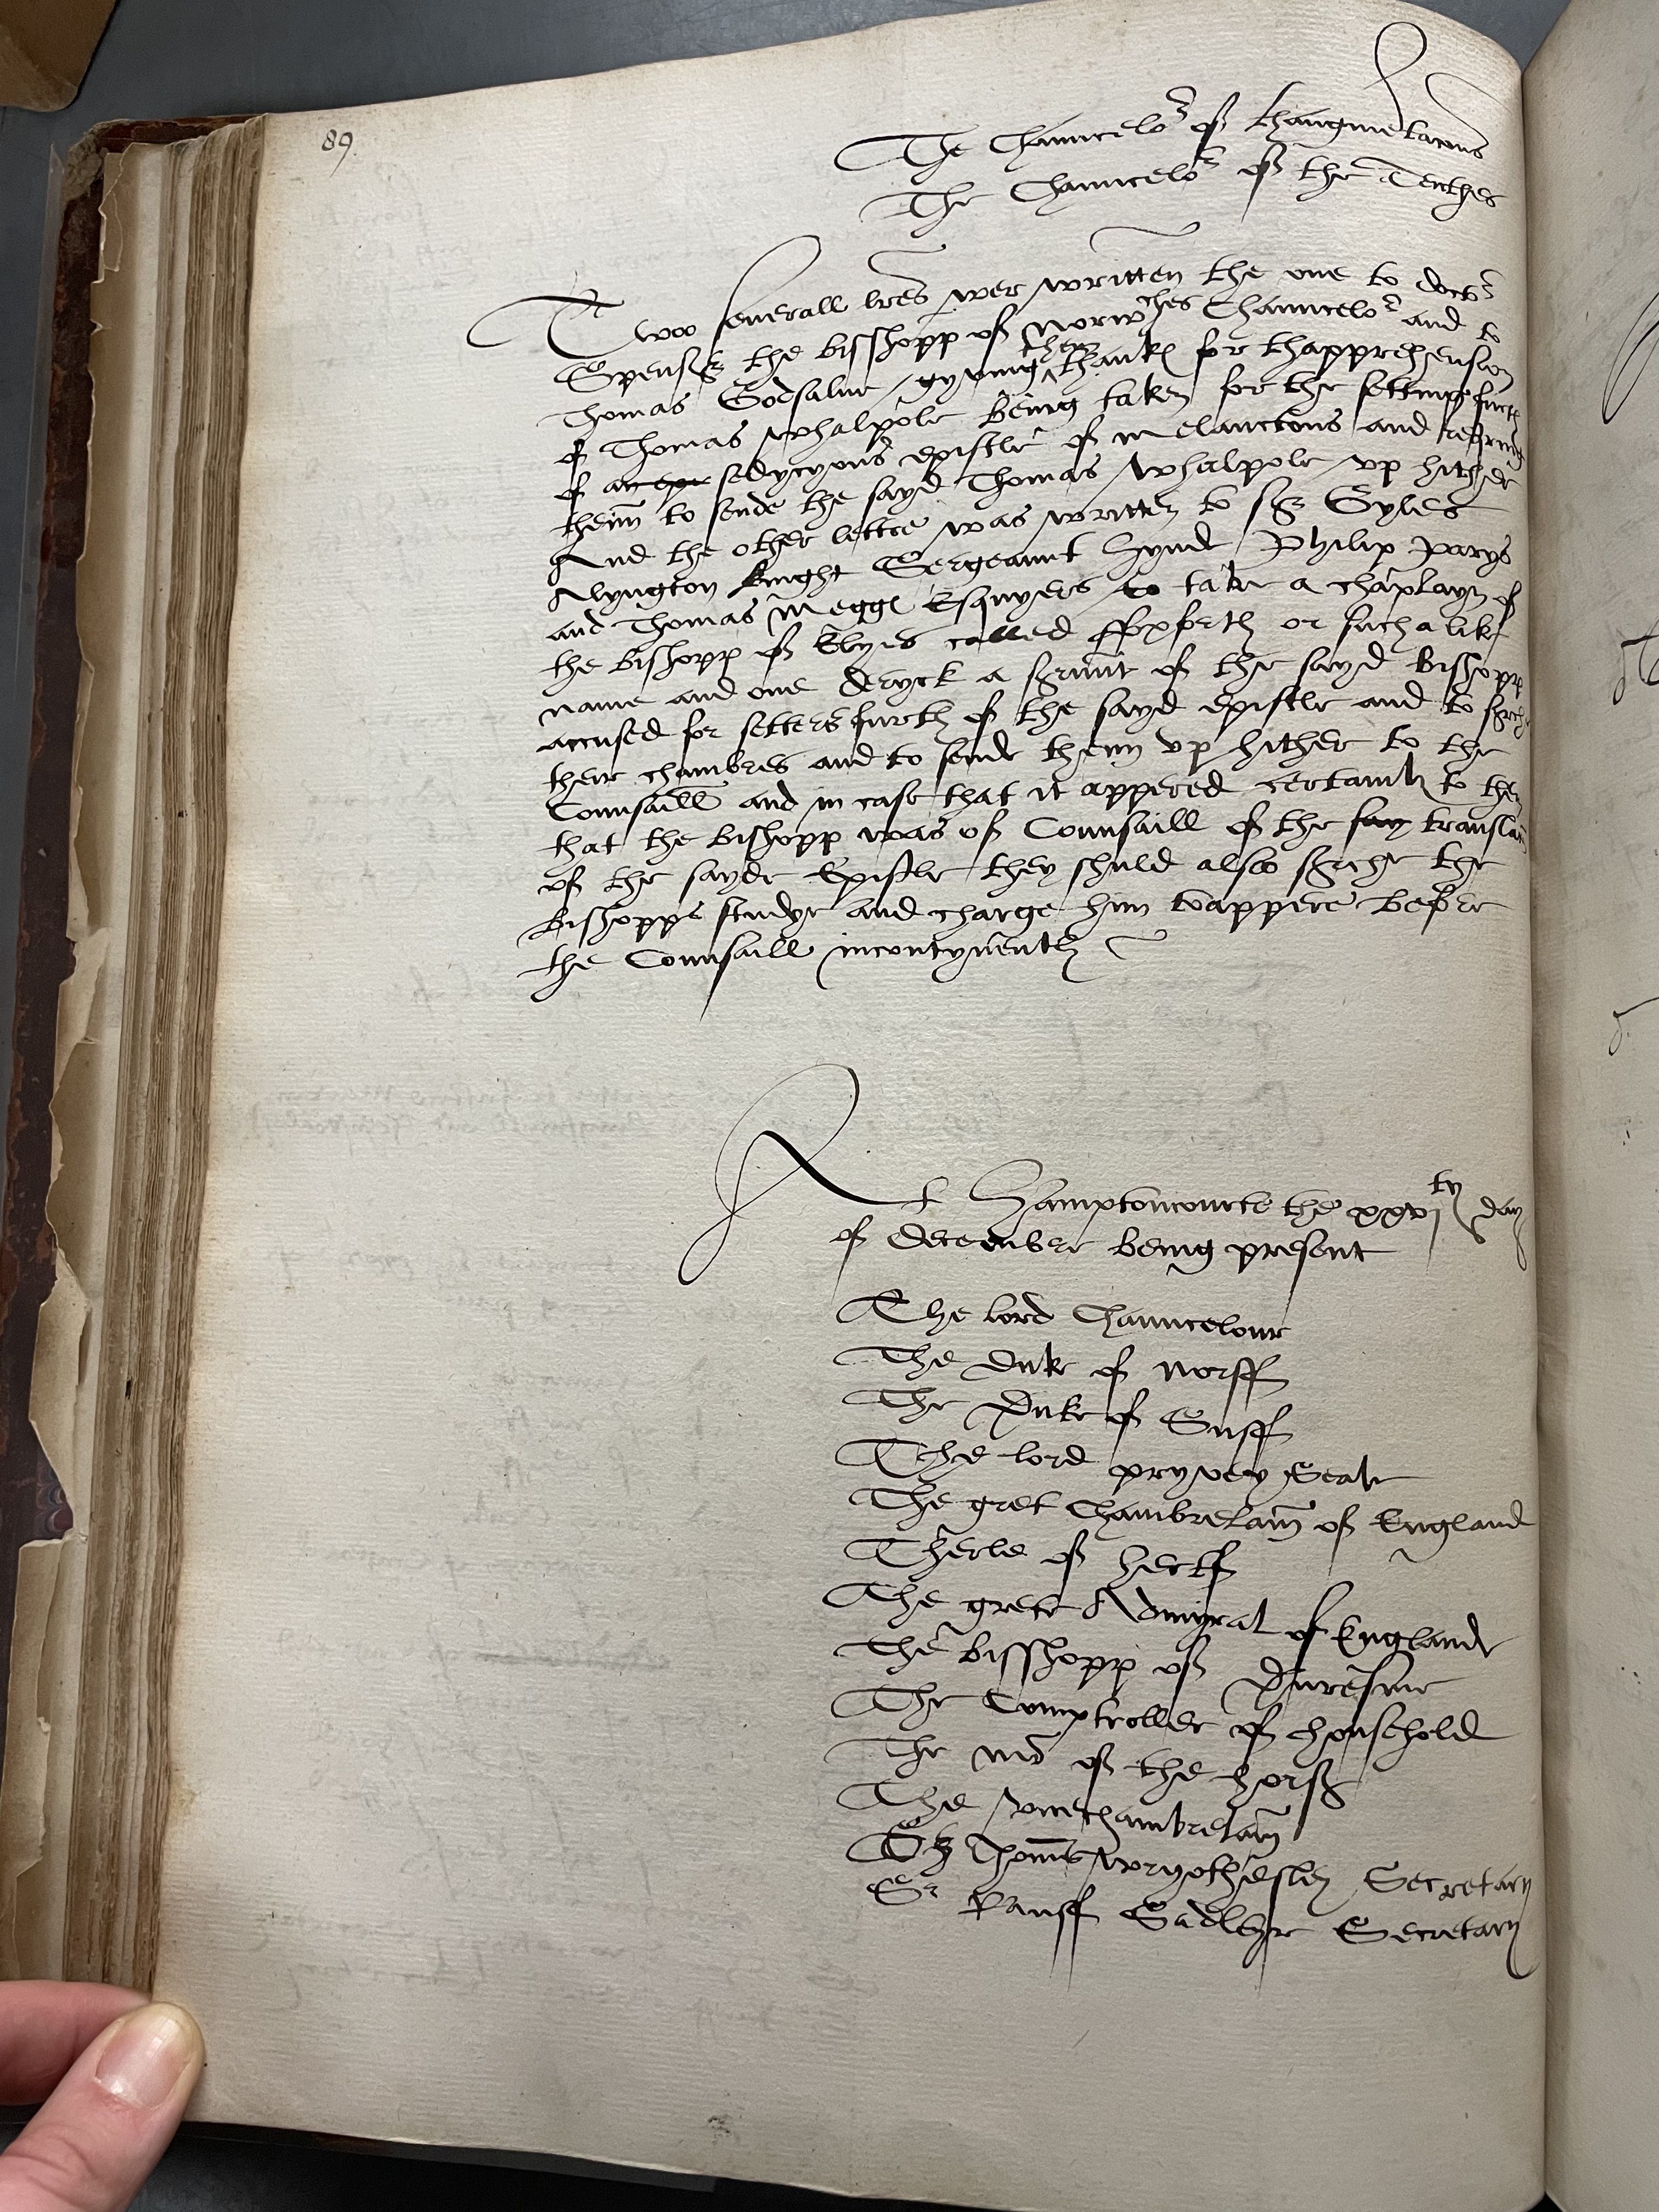 89
The Chauncelor of thaugmētacons
The Chauncelor of the Tenthes
Twoo severall lrēs wer written the one to doctor
Spenser the bisshopp of Norwches Chauncelor and to
Thomas Godsalue gyving them thanks for thapprehension
of Thomas Whalpole being taken for the setting furth
of an epi sedycyous epistle of Melanctons and requiring
theim to sende the sayd Thomas Whalpole vp hither
And the other lettre was written to sr Gyles
Alyngton knight Sergeaunt Hynd Philip Parys
and Thomas Meggs Esquyers to take a chaplayn of
the bishopp of Elyes called ffoxforth or such a like
name and one Deryck a seruūt of the sayd Bishopps
accused for setters furth of the sayd epistle and to serche
their chambres and to sende theim vp hither to the
Counsaill and in case that it appered certainly to them
that the bishopp was of Counsaill of the say translacon
of the sayde Epistle they shuld also serche the
Bishopps studye and charge him tappere before
the Counsaill incontynently
At Hamptoncourte the xxvjty day
of Decembre being present
The lord Chauncelour
The Duke of Norff
The Duke of Suff
The lord pryvey Seale
The gret Chambrelain of England
Therle of hertf
The grete Admyral of Englande
The bisshopp of Duresme
The Comptroller of household
The mr of the horse
The vicechambrelain
Sr Thoms Wryothesley Secretary
Sr Rauff Sadleyr Secretary